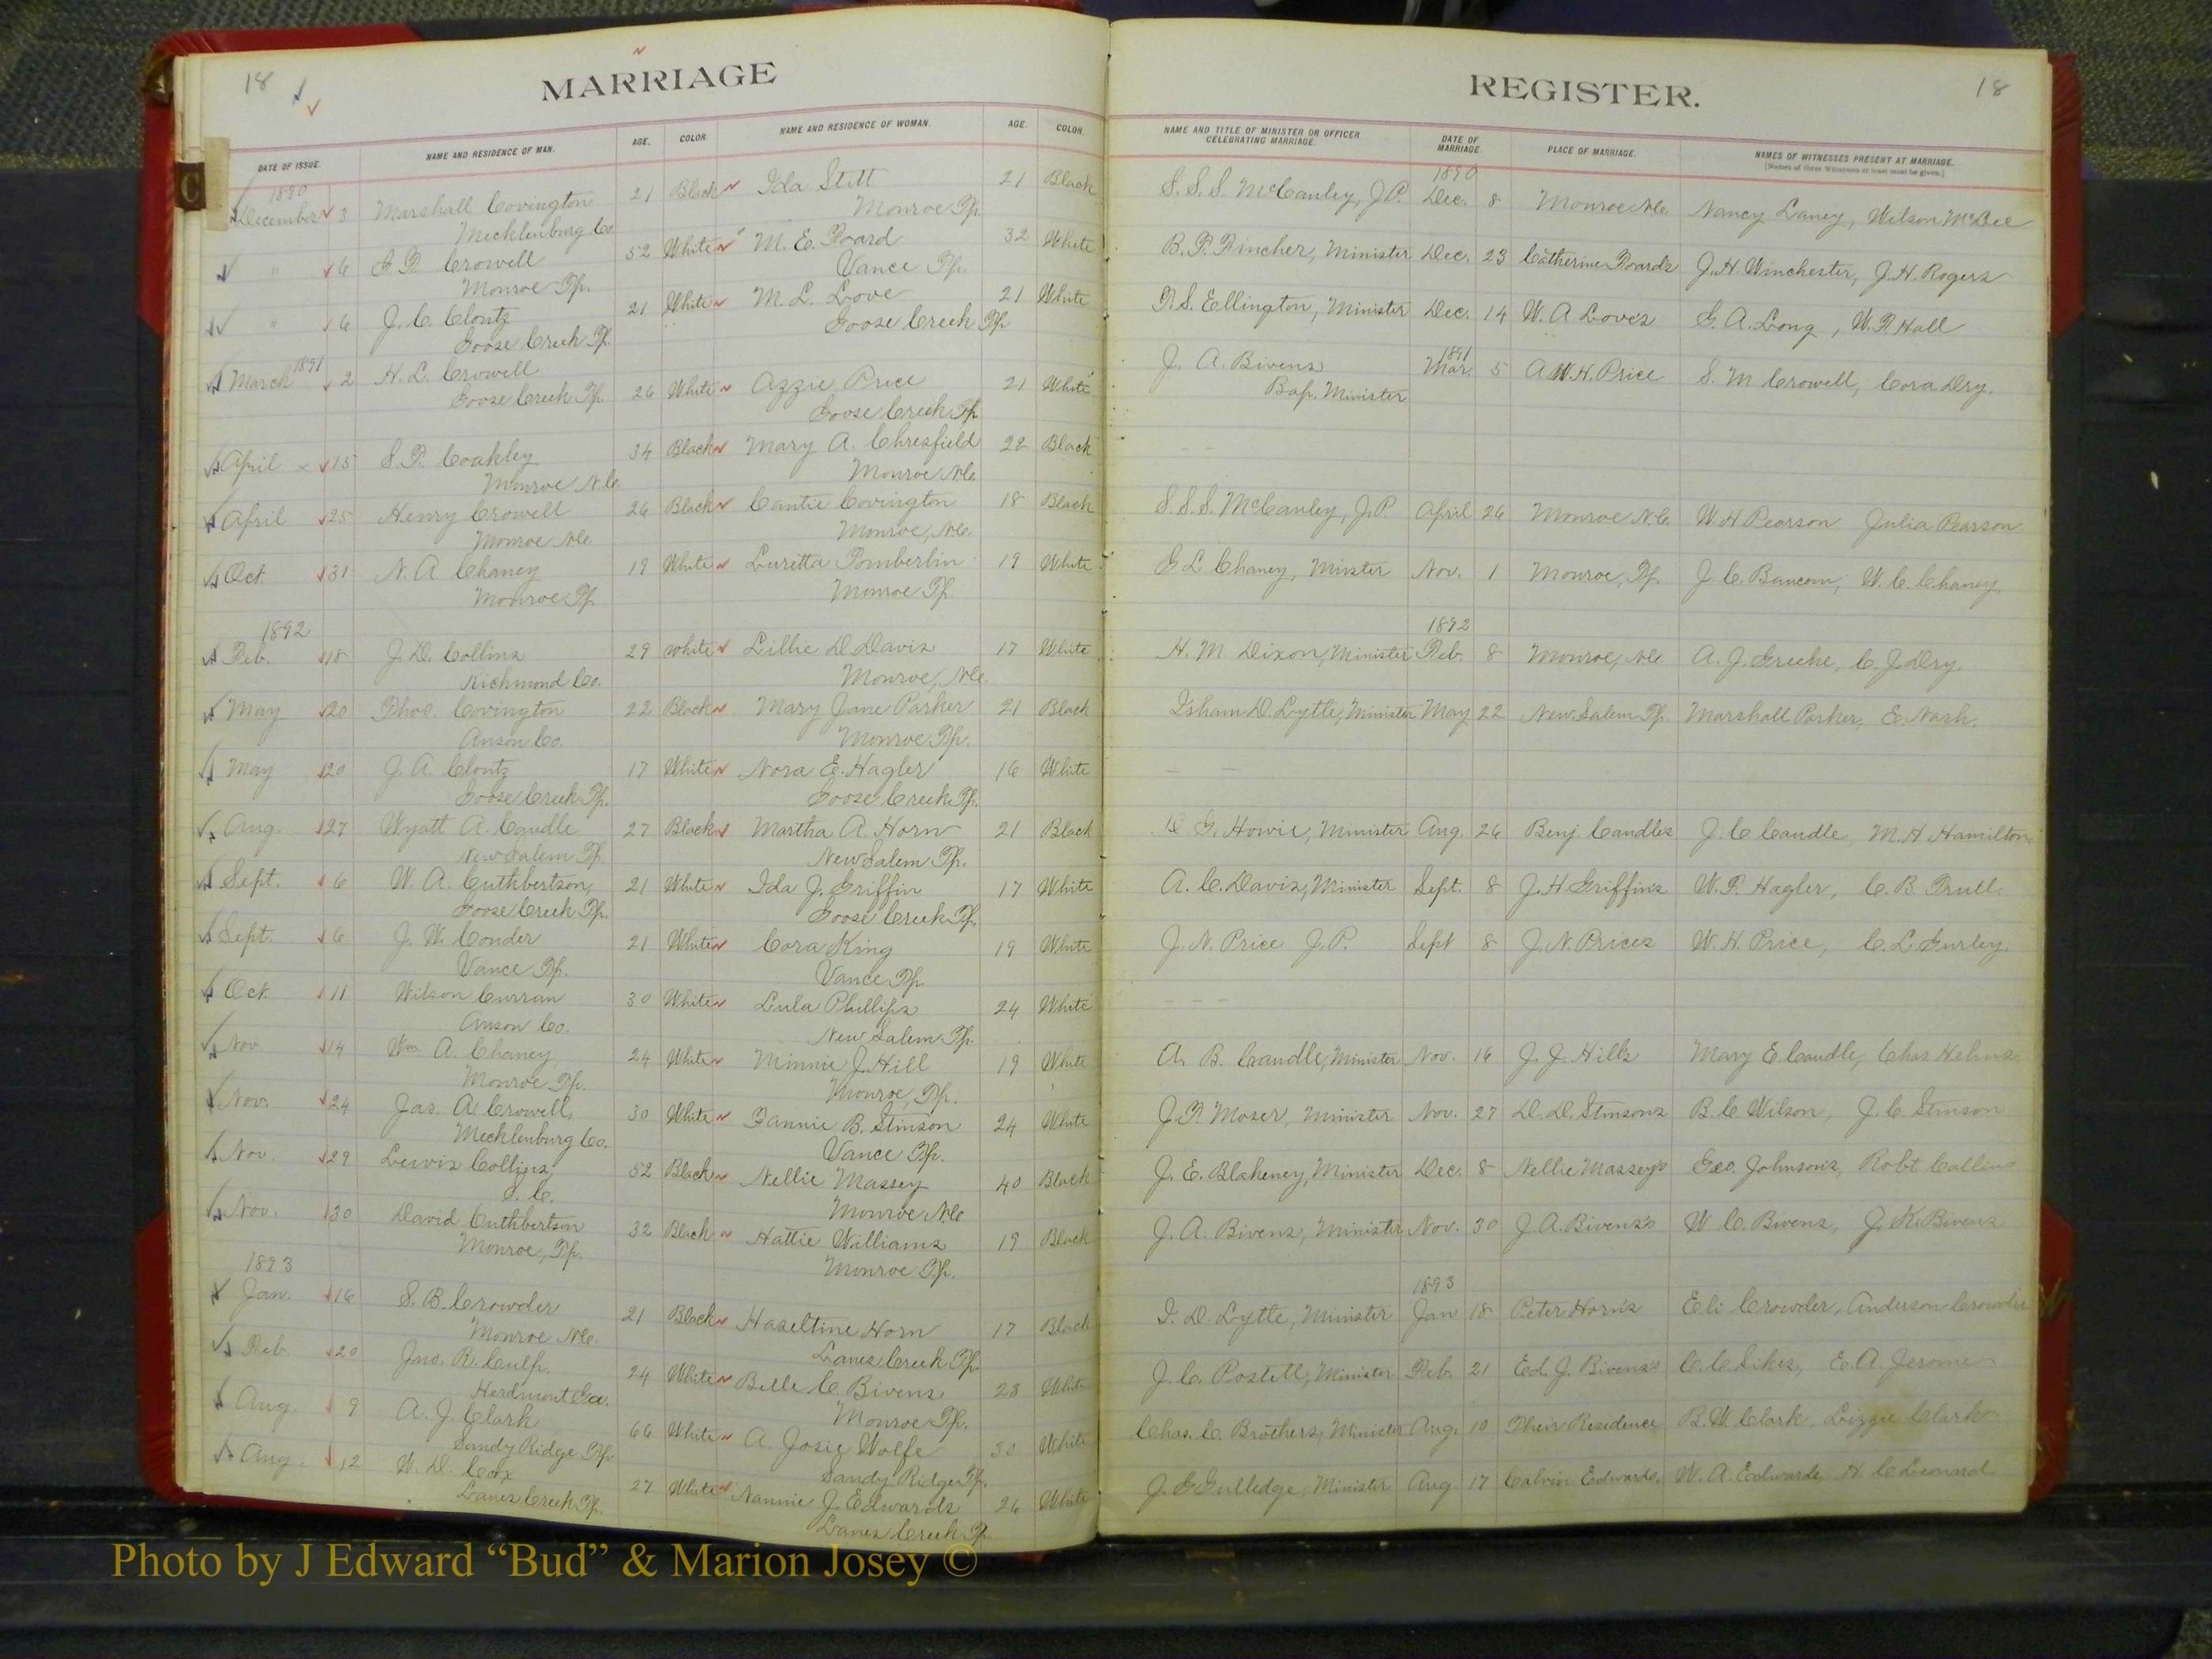 18
MARRIAGE
REGISTER.
18
DATE OF ISSUE.
NAME AND RESIDENCE OF MAN.
AGE.
COLOR.
NAME AND RESIDENCE OF WOMAN.
AGE.
COLOR.
NAME AND TITLE OF MINISTER OR OFFICER CELEBRATING MARRIAGE.
DATE OF MARRIAGE.
PLACE OF MARRIAGE.
NAMES OF WITNESSES PRESENT AT MARRIAGE.
[Names of three Witnesses at least must be given.]
1890 1890
December 3 Marshall Covington 21 Black Ida Stitt 21 Black S. S. S. McCauley, J.P. Dec. 8 Monroe N.C. Nancy Laney, Wilson McBee
Mecklenburg Co. Monroe Tp.
" 6 Crowell 52 White M. E. Foard 32 White B. F. Fincher, Minister Dec. 23 Catherine Foards J. H. Winchester, J. H. Rogers
Monroe Tp. Vance Tp.
" 6 J. C. Clontz 21 White M. L. Love 21 White T. S. Ellington, Minister Dec. 14 W. A. Love's G. A. Long, W. T. Hall
Goose Creek Tp. Goose Creek Tp
1891 1891
March 2 H. L. Crowell 26 White Azzie Price 21 White J. A. Bivens Mar. 5 A W. H. Price S. M Crowell, Cora Dry.
Goose Creek Tp. Goose Creek Tp Bap. Minister
April 15 S. P. Coakley 34 Black Mary A. Chresfield 22 Black — —
Monroe N.C. Monroe N.C.
April 25 Henry Crowell 26 Black Cantie Covington 18 Black S. S. S. McCauley, J.P. April 26 Monroe N.C. W. H Pearson Julia Pearson
Monroe N.C. Monroe, N.C.
Oct. 31 N. A Chaney 19 White Luretta Tomberlin 19 White G L Chaney, Minster Nov. 1 Monroe, Tp. J. C. Baucom, W. C. Chaney,
Monroe Tp. Monroe Tp.
1892 1892
Feb. 18 J. D. Collins 29 White Lillie D. Davis 17 White H. M Dixon, Minister Feb. 8 Monroe, N.C. A. J. C. J Dry.
Richmond Co. Monroe, N.C.
May 20 Thos. Covington 22 Black Mary Jane Parker 21 Black Isham D. Lytle, Minister May 22 New Salem Tp. Marshall Parker, E. Nash.
Anson Co. Monroe Tp.
May 20 J. A. Clontz 17 White Nora E. Hagler 16 White — —
Goose Creek Tp. Goose Creek Tp.
Aug. 27 Wyatt A. Caudle 27 Black Martha A. Horn 21 Black G. Howie, Minister Aug. 26 Benj. Caudles J. C Caudle, M. H. Hamilton
New Salem Tp. New Salem Tp.
Sept. 6 W. A. Cuthbertson, 21 White Ida J. Griffin 17 White A. C. Davis, Minister Sept. 8 J. H. Griffin's W. P. Hagler, C. B. Trull.
Goose Creek Tp. Goose Creek Tp.
Sept. 6 J. W. Conder 21 White Cora King 19 White J. N. Price J. P. Sept 8 J. N. Prices W. H. Price, C. L. Gurley.
Vance Tp. Vance Tp
Oct. 11 Wilson Curran 30 White Lula Phillips 24 White — —
Anson Co. New Salem Tp.
Nov. 14 Wm A. Chaney, 24 White Minnie J. Hill 19 White A. B. Caudle, Minister Nov. 16 J. J. Hill's Mary E Caudle, Chas Helms
Monroe Tp. Monroe, Tp.
Nov. 24 Jas. A. Crowell, 30 White Fannie B. Stinson 24 White J. F. Moser, Minister Nov. 27 D. D. Stinsons B. C Wilson, J. C. Stinson
Mecklenburg Co. Vance Tp.
Nov. 29 Lewis Collins 52 Black Nellie Massey 40 Black J. E. Blakeney, Minister Dec. 8 Nellie Massey's Geo. Johnsons, Robt Collins
S. C. Monroe N.C.
Nov. 30 David Cuthbertson 32 Black Hattie Williams 19 Black J. A. Bivens, Minister Nov. 30 J. A. Bivens's W. C. Bivens, J. K. Bivens
Monroe, Tp. Monroe Tp.
1893 1893
Jan. 16 S. B. Crowder 21 Black Haseltine Horn 17 Black I. D. Lytle, Minister Jan 18 Peter Horn's Eli Crowder, Anderson Crowder
Monroe N.C. Lanes Creek Tp.
Feb. 20 Jno. R. Culp. 24 White Belle C Bivens 23 White J. C. Postell, Minister Feb. 21 Ed. J. Bivens's C. C Sikes, E. A. Jerome
Herdmont Ga. Monroe Tp.
Aug. 9 A. J. Clark 66 White A. Josie Wolfe 30 White Chas. C. Brothers, Minister Aug. 10 Their Residence B. W. Clark, Lizzie Clark
Sandy Ridge Tp Sandy Ridge Tp.
Aug. 12 W. D. Cox 27 White Nannie J. Edwards 26 White J. G Gulledge, Minister Aug 17 Calvin Edwards. W. A. Edwards H C Leonard.
Lanes Creek Tp. Lanes Creek Tp.
C
Photo by J Edward “Bud” & Marion Josey ©